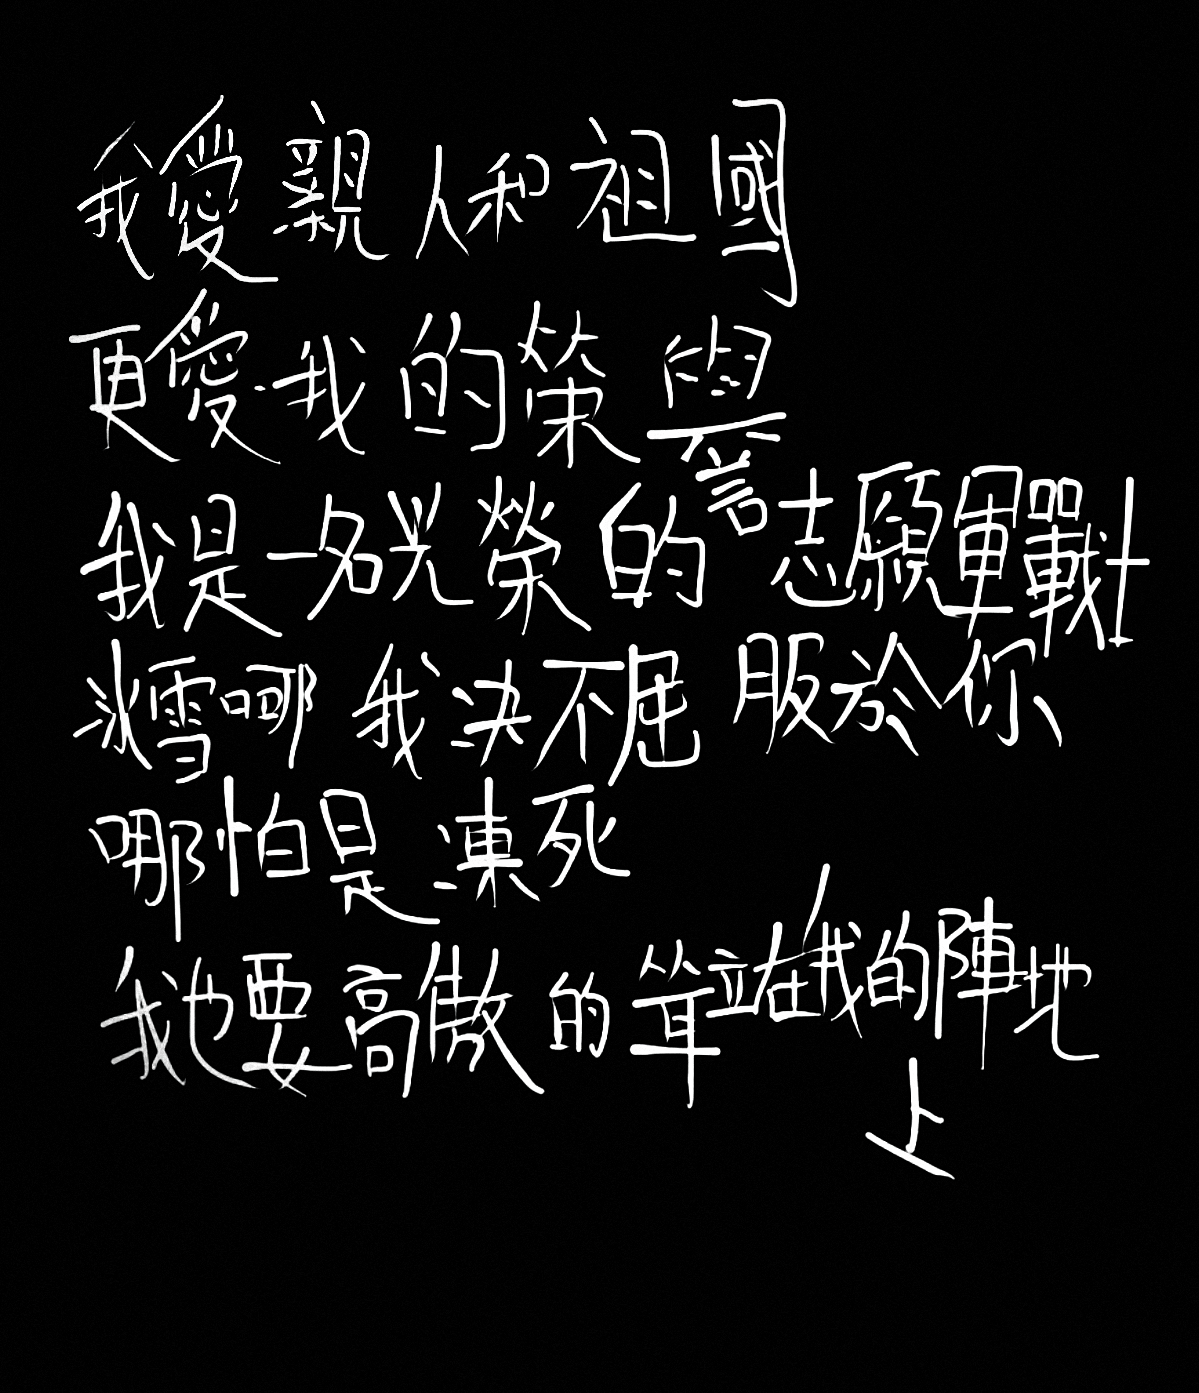 我愛親人和祖國
更愛我的榮譽
我是一名光榮的志願軍戰士
冰雪哪我決不屈服於你
哪怕是凍死
我也要高傲的聳立在我的陣地上